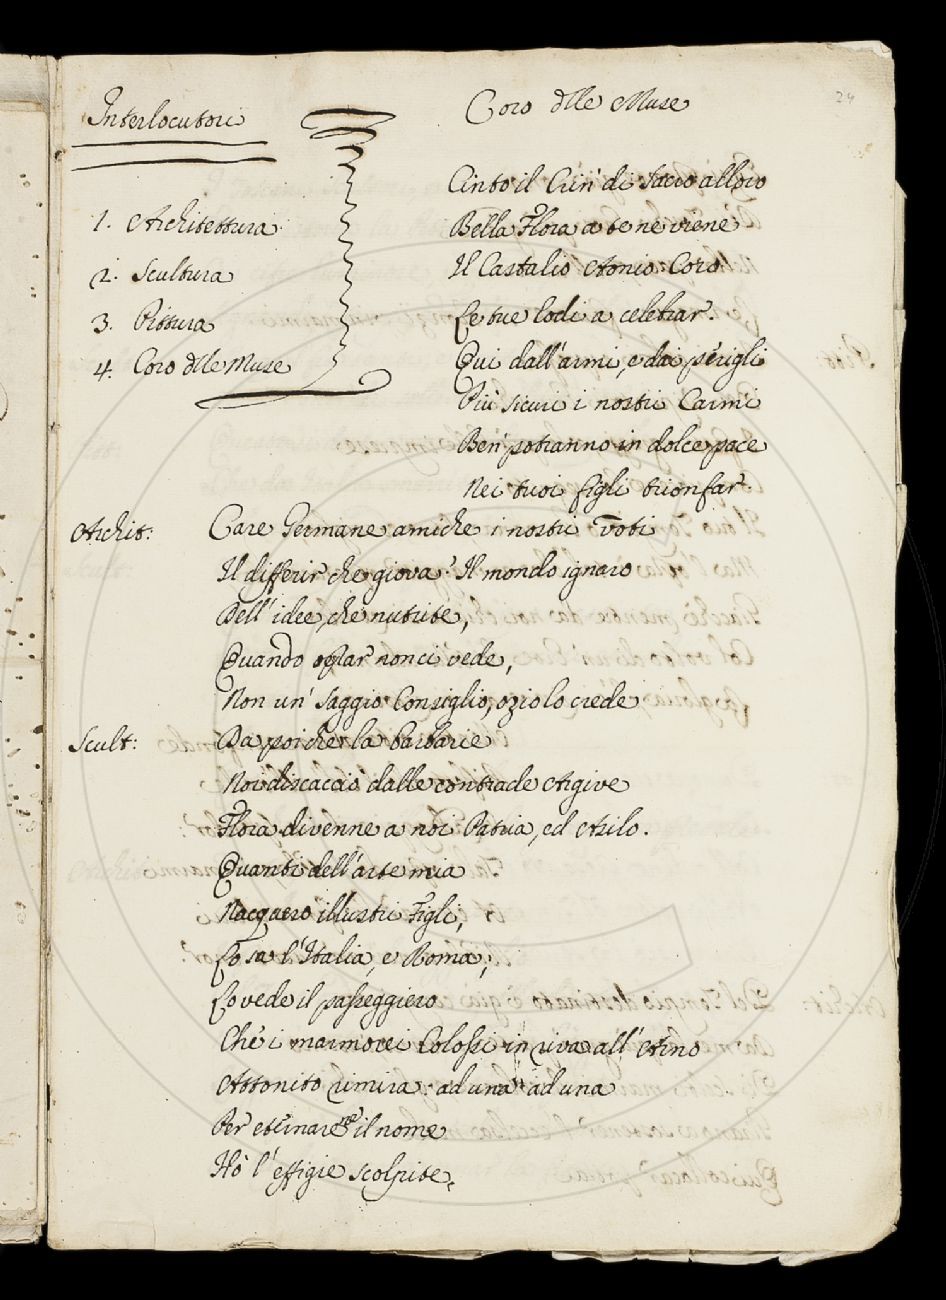 24
Interlocutori
1. Architettura
2. Scultura
3. Pittura
4. Coro dlle Muse
Coro dlle Muse
Cinto il Crin' di sacro alloro
Bella Flora a te ne viene
Il Castalio Aonio Coro
Le tue lodi a celebrar.
Qui dall'armi, e dai perigli
Più sicuri i nostri Carmi
Ben' potranno in dolce pace
Nei tuoi figli trionfar.
Archit: Care Germane amiche i nostri voti
Il differir che giova? Il mondo ignaro
Dell'idee, che nutrite,
Quando oprar non ci vede,
Non un' saggio Consiglio, ozio lo crede
Scult: Da poi che la barbarie
Noi discacciò dalle contrade Argive
Flora divenne a noi Patria, ed Asilo.
Quanti dell'arte mia
Nacquero illustri Figli,
Lo sa l'Italia, e Roma;
Lo vede il passeggiero
Che i marmorei Colossi in riva all'Arno
Attonito rimira: ad una ad una
Per eternarne il nome
Hò l'effigie scolpite,